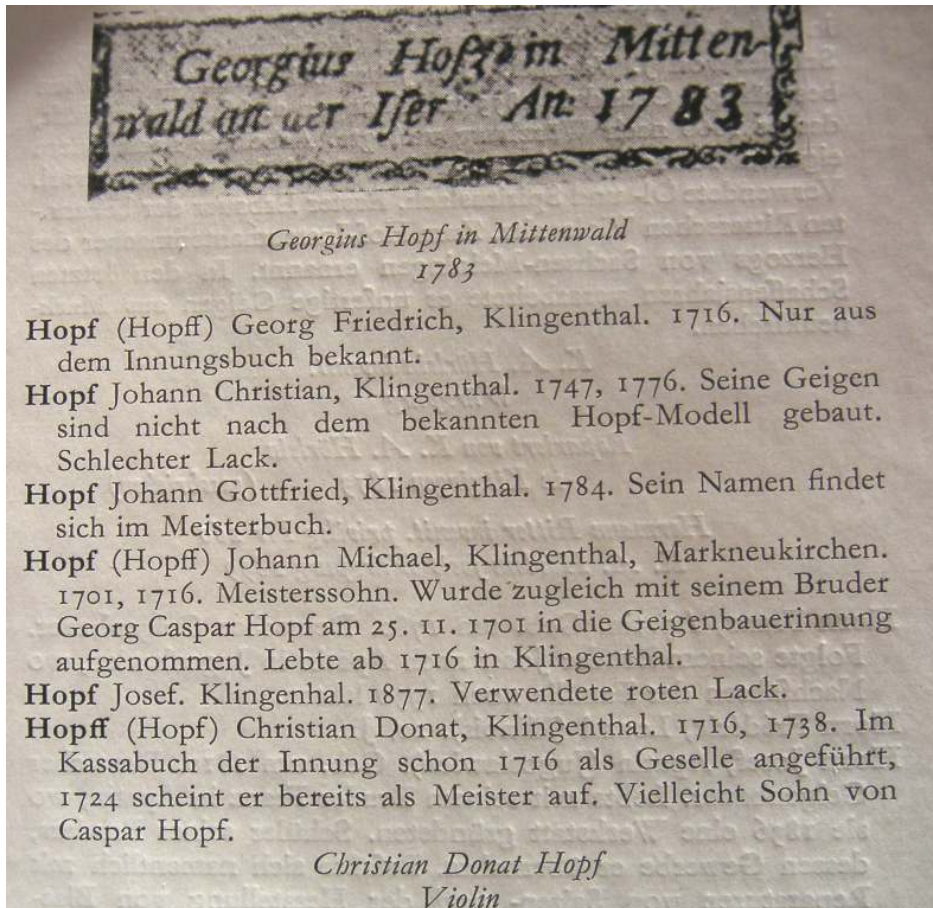 Georgius Hopf in Mitten-
wald an der Iser An: 1783
Georgius Hopf in Mittenwald
1783
Hopf (Hopff) Georg Friedrich, Klingenthal. 1716. Nur aus
dem Innungsbuch bekannt.
Hopf Johann Christian, Klingenthal. 1747, 1776. Seine Geigen
sind nicht nach dem bekannten Hopf-Modell gebaut.
Schlechter Lack.
Hopf Johann Gottfried, Klingenthal. 1784. Sein Namen findet
sich im Meisterbuch.
Hopf (Hopff) Johann Michael, Klingenthal, Markneukirchen.
1701, 1716. Meisterssohn. Wurde zugleich mit seinem Bruder
Georg Caspar Hopf am 25. 11. 1701 in die Geigenbauerinnung
aufgenommen. Lebte ab 1716 in Klingenthal.
Hopf Josef. Klingenhal. 1877. Verwendete roten Lack.
Hopff (Hopf) Christian Donat, Klingenthal. 1716, 1738. Im
Kassabuch der Innung schon 1716 als Geselle angeführt,
1724 scheint er bereits als Meister auf. Vielleicht Sohn von
Caspar Hopf.
Christian Donat Hopf
Violin